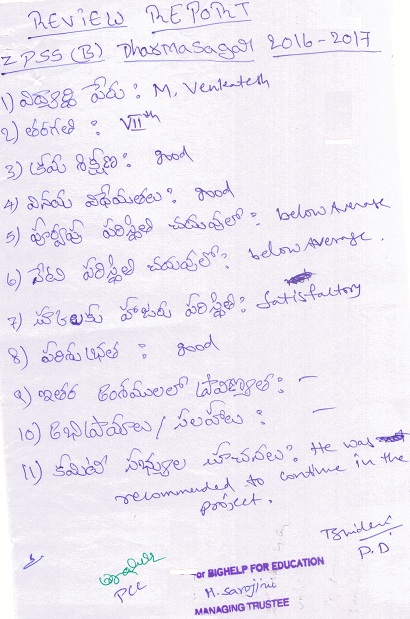 REVIEW REPORT
ZPSS (B) Dharmasagar 2016-2017
1) విద్యార్థి పేరు : M. Venkatesh
2) తరగతి : VIIth
3) క్రమ శిక్షణ : good
4) వినయ విధేయతలు : good
5) పూర్వపు పరిస్థితి చదువులో : below Average
6) నేటి పరిస్థితి చదువులో : below Average.
7) హాజరు పరిస్థితి : Satisfactory
8) పరిశుభ్రత : good
9) ఇతర అంశములలో ప్రావీణ్యత : —
10) అభిప్రాయాలు / సలహాలు : —
11) కమిటి సభ్యుల సూచనలు : He was
recommended to continue in the
project.
P.D
PCC
For BIGHELP FOR EDUCATION
M. Sarojini
MANAGING TRUSTEE